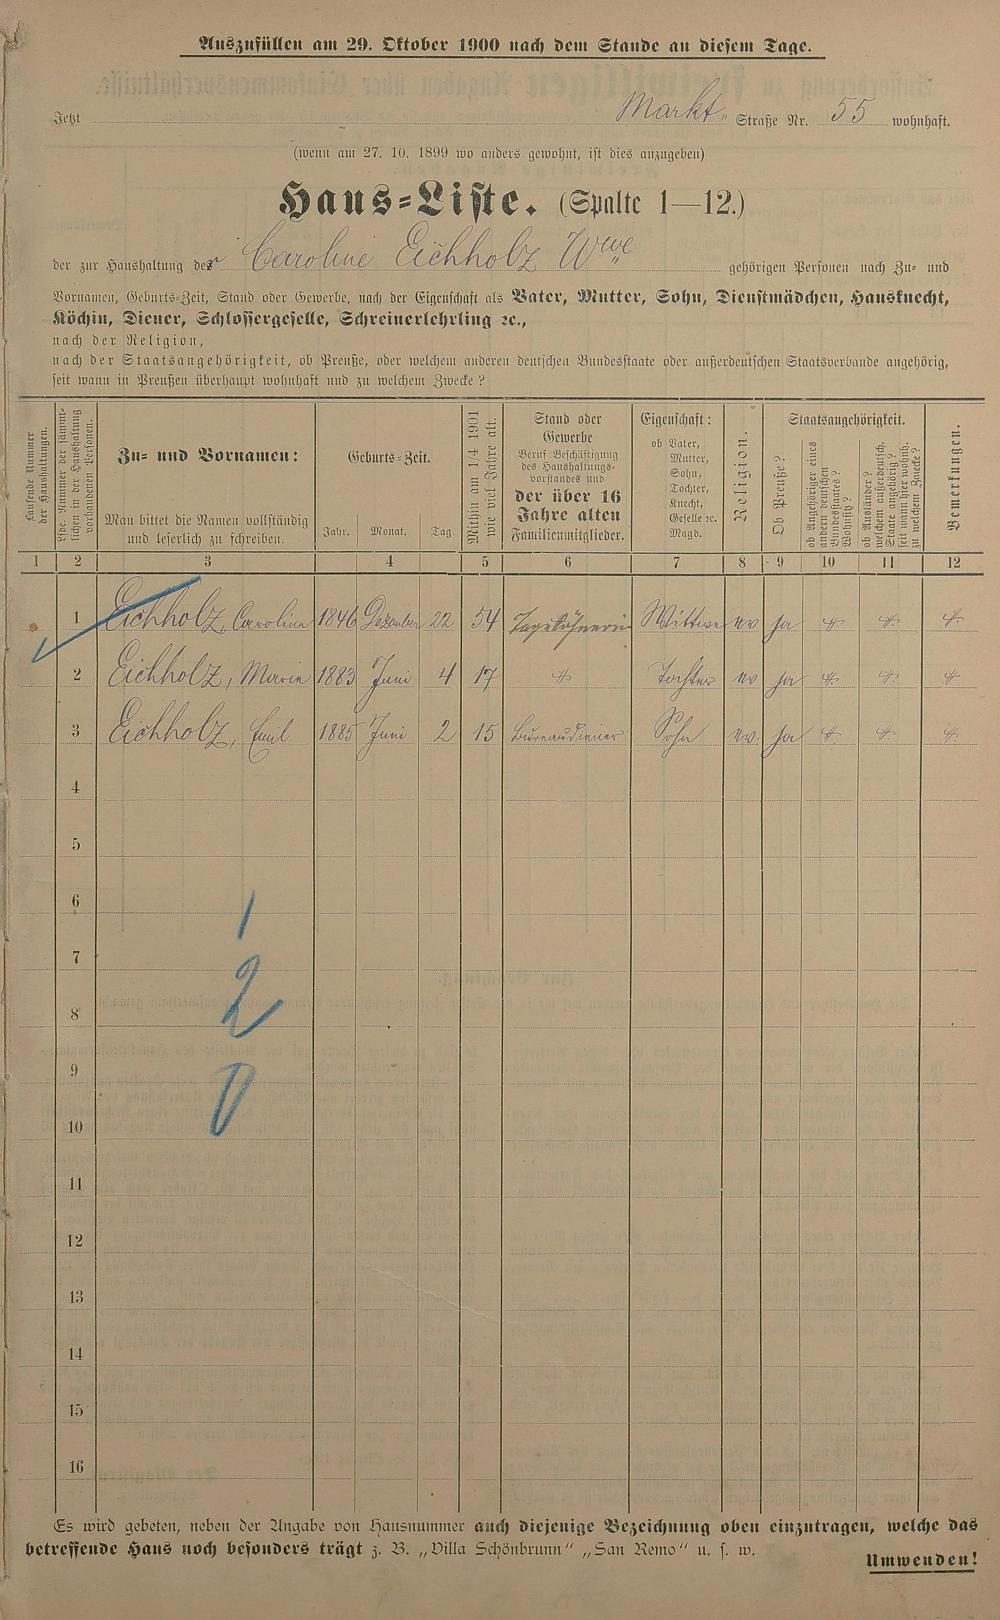 Auszufüllen am 29. Oktober 1900 nach dem Stande an diesem Tage.
Jetzt Markt- Straße Nr. 55 wohnhaft.
(wenn am 27. 10. 1899 wo anders gewohnt, ist dies anzugeben)
Haus-Liste. (Spalte 1—12.)
der zur Haushaltung der Caroline Eichholz Wwe gehörigen Personen nach Zu- und
Vornamen, Geburts-Zeit, Stand oder Gewerbe, nach der Eigenschaft als Vater, Mutter, Sohn, Dienstmädchen, Hausknecht,
Köchin, Diener, Schlossergeselle, Schreinerlehrling ꝛc.,
nach der Religion,
nach der Staatsangehörigkeit, ob Preuße, oder welchem anderen deutschen Bundesstaate oder außerdeutschen Staatsverbande angehörig,
seit wann in Preußen überhaupt wohnhaft und zu welchem Zwecke?
Laufende Nummer der Haushaltungen.
Lfde. Nummer der sämmtlichen in der Haushaltung vorhandenen Personen.
Zu- und Vornamen:
Man bittet die Namen vollständig und leserlich zu schreiben.
Geburts-Zeit.
Jahr. Monat. Tag.
Mithin am 1/4 1901 wie viel Jahre alt.
Stand oder Gewerbe
Beruf Beschäftigung des Haushaltungsvorstandes und der über 16 Jahre alten Familienmitglieder.
Eigenschaft:
ob Vater, Mutter, Sohn, Tochter, Knecht, Geselle ꝛc. Magd.
Religion.
Staatsangehörigkeit.
Ob Preuße?
ob Angehöriger eines andern deutschen Bundesstaates? Wohnsitz?
ob Ausländer? welchem außerdeutsch. Staate angehörig? seit wann hier wohnh. zu welchem Zwecke?
Bemerkungen.
1 2 3 4 5 6 7 8 9 10 11 12
1 Eichholz, Caroline 1846 Dezember 22 54 Tagelöhnerin Wittwe ev ja
2 Eichholz, Marie 1883 Juni 4 17 Tochter ev ja
3 Eichholz, Emil 1885 Juni 2 15 Bureaudiener Sohn ev. ja
4
5
6
1
7
2
8
9
0
10
11
12
13
14
15
16
Es wird gebeten, neben der Angabe von Hausnummer auch diejenige Bezeichnung oben einzutragen, welche das
betreffende Haus noch besonders trägt z. B. „Villa Schönbrunn“ „San Remo“ u. s. w.
Umwenden!